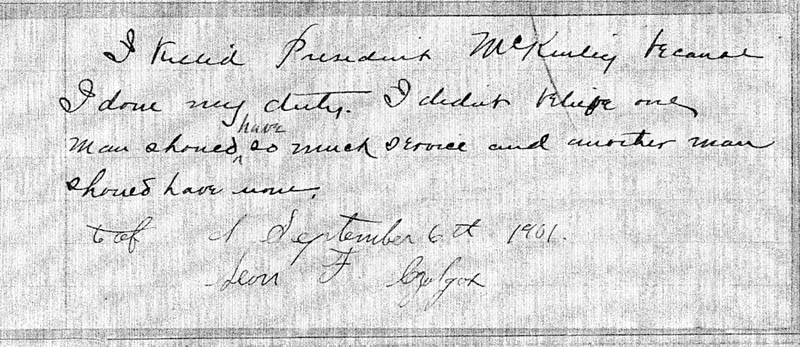 I killed President McKinley because
I done my duty. I didn't believe one
man should have so much service and another man
should have none.
September 6th 1901.
Leon F Czolgosz